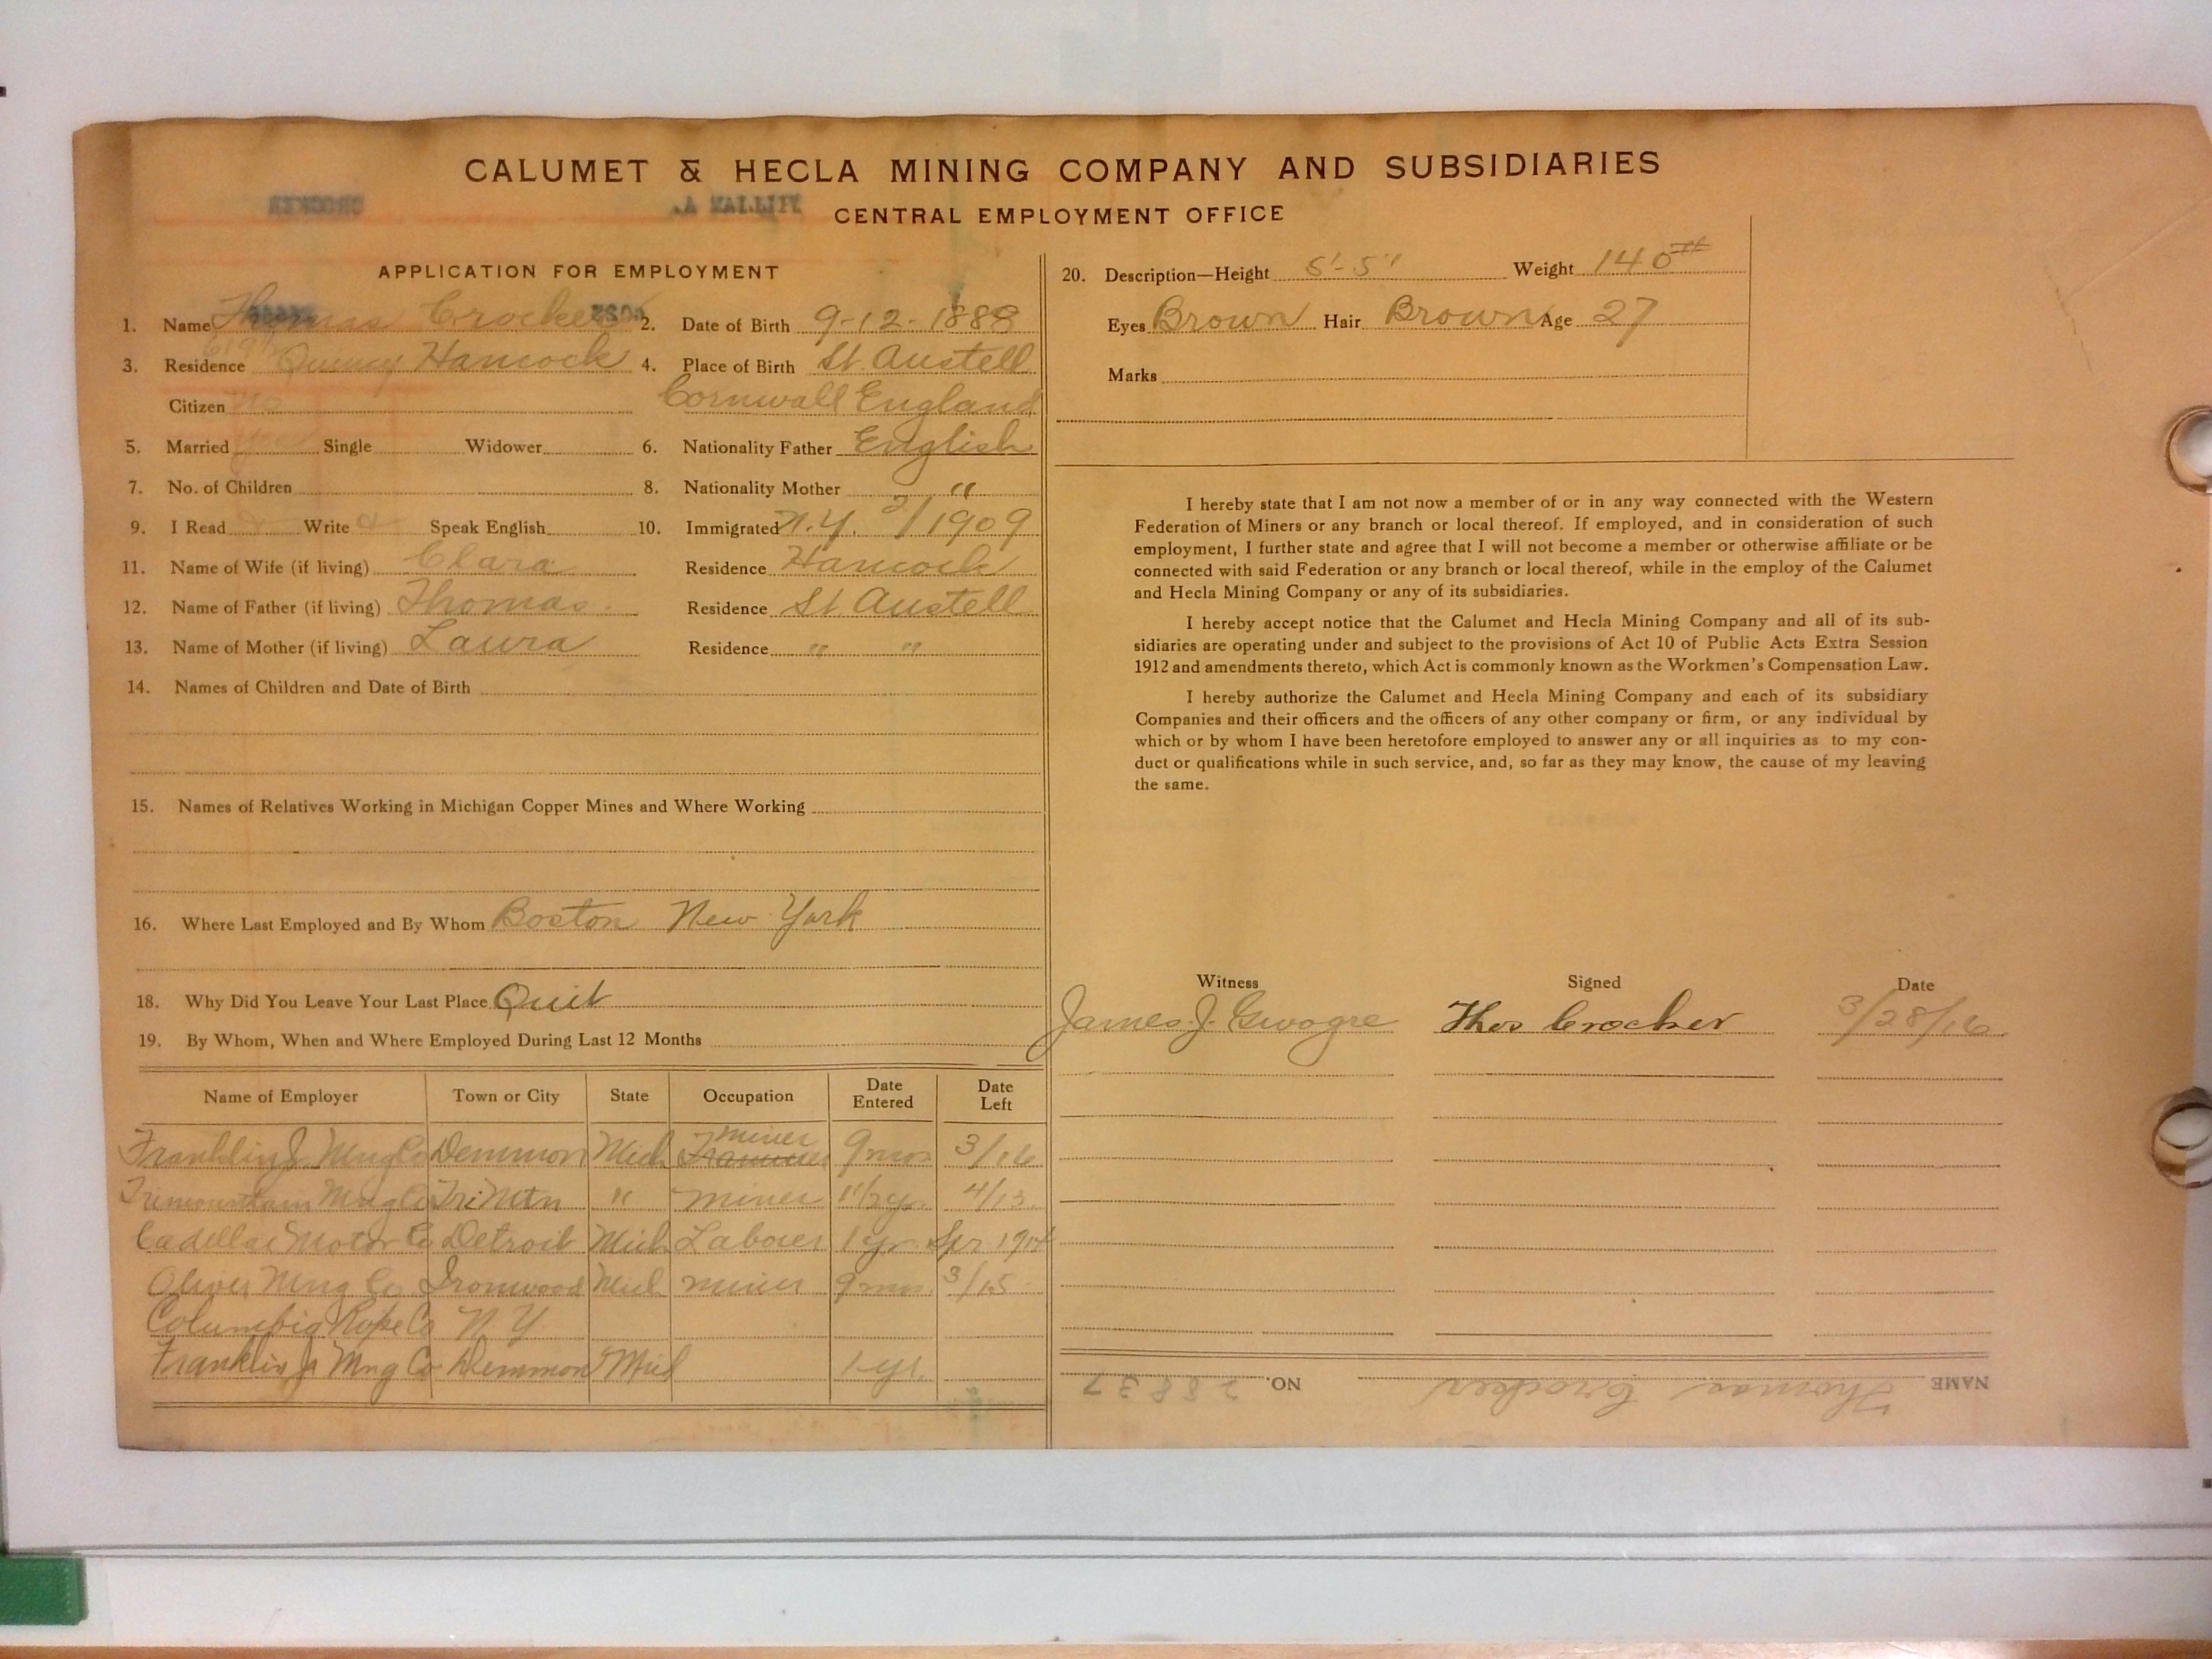 CALUMET & HECLA MINING COMPANY AND SUBSIDIARIES
CROCKER WILLIAM A.
CENTRAL EMPLOYMENT OFFICE
APPLICATION FOR EMPLOYMENT
1. Name Thomas Crocker 2. Date of Birth 9-12-1888
3. Residence Quincy Hancock 4. Place of Birth St. Austell
Citizen no Cornwall England
5. Married yes Single Widower 6. Nationality Father English
7. No. of Children 8. Nationality Mother "
9. I Read Write Speak English 10. Immigrated N.Y. 3/1909
11. Name of Wife (if living) Clara Residence Hancock
12. Name of Father (if living) Thomas. Residence St. Austell
13. Name of Mother (if living) Laura Residence " "
14. Names of Children and Date of Birth
15. Names of Relatives Working in Michigan Copper Mines and Where Working
16. Where Last Employed and By Whom Boston New York
18. Why Did You Leave Your Last Place Quit
19. By Whom, When and Where Employed During Last 12 Months
Name of Employer Town or City State Occupation Date Entered Date Left
Franklin J. Mng Co Demmon Mich miner Trammer 9 mos 3/16
Trimountain Mng Co Tri Mtn " miner 1 1/2 yr. 4/13
Cadillac Motor Co Detroit Mich Laborer 1 yr. Spr 1914
Oliver Mng Co Ironwood Mich miner 9 mos. 3/15
Columbia Rope Co N.Y
Franklin Jr Mng Co Demmon Mich 1 yr.
20. Description—Height 5'-5" Weight 140#
Eyes Brown Hair Brown Age 27
Marks
I hereby state that I am not now a member of or in any way connected with the Western
Federation of Miners or any branch or local thereof. If employed, and in consideration of such
employment, I further state and agree that I will not become a member or otherwise affiliate or be
connected with said Federation or any branch or local thereof, while in the employ of the Calumet
and Hecla Mining Company or any of its subsidiaries.
I hereby accept notice that the Calumet and Hecla Mining Company and all of its sub-
sidiaries are operating under and subject to the provisions of Act 10 of Public Acts Extra Session
1912 and amendments thereto, which Act is commonly known as the Workmen's Compensation Law.
I hereby authorize the Calumet and Hecla Mining Company and each of its subsidiary
Companies and their officers and the officers of any other company or firm, or any individual by
which or by whom I have been heretofore employed to answer any or all inquiries as to my con-
duct or qualifications while in such service, and, so far as they may know, the cause of my leaving
the same.
Witness Signed Date
James J. Thos Crocker 3/28/16
NAME Thomas Crocker NO. 28837